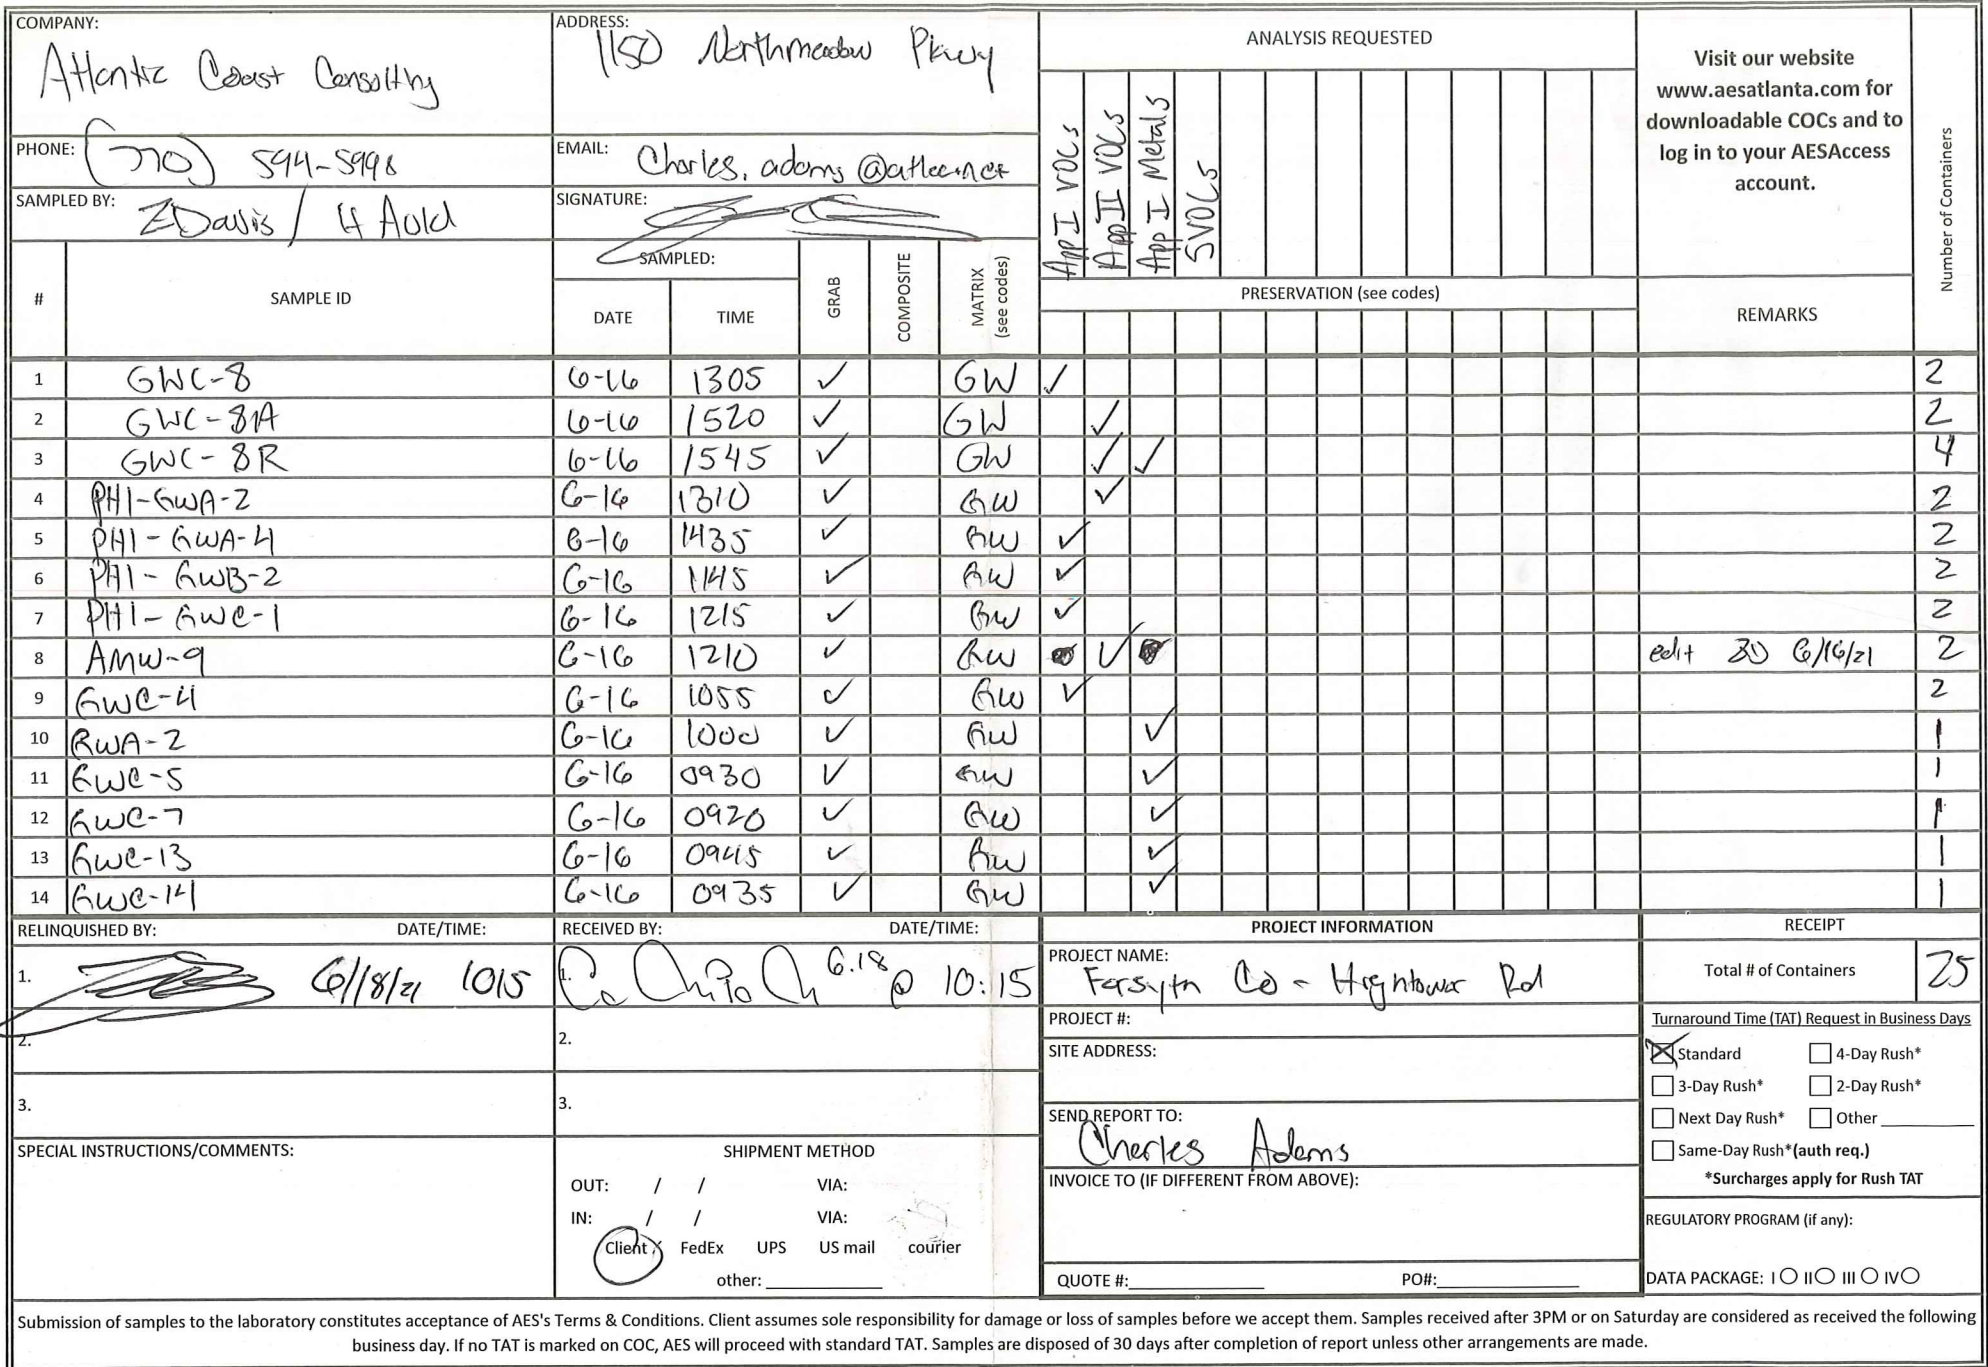 COMPANY:
Atlantic Coast Consulting
ADDRESS:
1150 Northmeadow Pkwy
PHONE: (770) 594-5998
EMAIL: Charles.adams@atlcc.net
SAMPLED BY: ZDavis / H Auld
SIGNATURE:
ANALYSIS REQUESTED
App I VOCs
App II VOCs
App I Metals
SVOCs
Visit our website
www.aesatlanta.com for
downloadable COCs and to
log in to your AESAccess
account.
Number of Containers
# SAMPLE ID SAMPLED: DATE TIME GRAB COMPOSITE MATRIX (see codes) PRESERVATION (see codes) REMARKS
1 GWC-8 6-16 1305 ✓ GW ✓ 2
2 GWC-81A 6-16 1520 ✓ GW ✓ 2
3 GWC-8R 6-16 1545 ✓ GW ✓ ✓ 4
4 PH1-GWA-2 6-16 1310 ✓ GW ✓ 2
5 PH1-GWA-4 6-16 1435 ✓ GW ✓ 2
6 PH1-GWB-2 6-16 1145 ✓ GW ✓ 2
7 PH1-GWC-1 6-16 1215 ✓ GW ✓ 2
8 AMW-9 6-16 1210 ✓ GW ✓ edit ZD 6/16/21 2
9 GWC-4 6-16 1055 ✓ GW ✓ 2
10 GWA-2 6-16 1000 ✓ GW ✓ 1
11 GWC-5 6-16 0930 ✓ GW ✓ 1
12 GWC-7 6-16 0920 ✓ GW ✓ 1
13 GWC-13 6-16 0945 ✓ GW ✓ 1
14 GWC-14 6-16 0935 ✓ GW ✓ 1
RELINQUISHED BY: DATE/TIME:
1. 6/18/21 1015
2.
3.
RECEIVED BY: DATE/TIME:
1. 6.18 @ 10:15
2.
3.
PROJECT INFORMATION
PROJECT NAME:
Forsyth Co - Hightower Rd
PROJECT #:
SITE ADDRESS:
SEND REPORT TO:
Charles Adams
INVOICE TO (IF DIFFERENT FROM ABOVE):
QUOTE #: PO#:
RECEIPT
Total # of Containers 25
Turnaround Time (TAT) Request in Business Days
Standard 4-Day Rush*
3-Day Rush* 2-Day Rush*
Next Day Rush* Other
Same-Day Rush*(auth req.)
*Surcharges apply for Rush TAT
REGULATORY PROGRAM (if any):
DATA PACKAGE: I O II O III O IV O
SPECIAL INSTRUCTIONS/COMMENTS:
SHIPMENT METHOD
OUT: / / VIA:
IN: / / VIA:
Client FedEx UPS US mail courier
other:
Submission of samples to the laboratory constitutes acceptance of AES's Terms & Conditions. Client assumes sole responsibility for damage or loss of samples before we accept them. Samples received after 3PM or on Saturday are considered as received the following
business day. If no TAT is marked on COC, AES will proceed with standard TAT. Samples are disposed of 30 days after completion of report unless other arrangements are made.